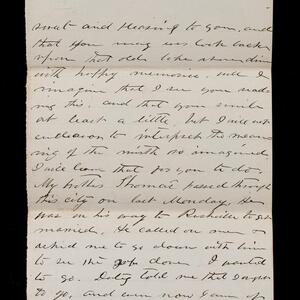 and pleasing to you, and
that you may ever look back
upon that old lake
with happy memories. well I
imagine that I see you read
ing this. and that you smile
at least a little, but I will not
endeavor to interpret the mean
ing of the mirth so imagined
I will leave that for you to do
My brother Thomas passed through
this city on last Monday, He
was on his way to to get
married. He called on me &
asked me to go down with him
to see the job done. I wanted
to go. Duty told me that I ought
to go, and even now some of